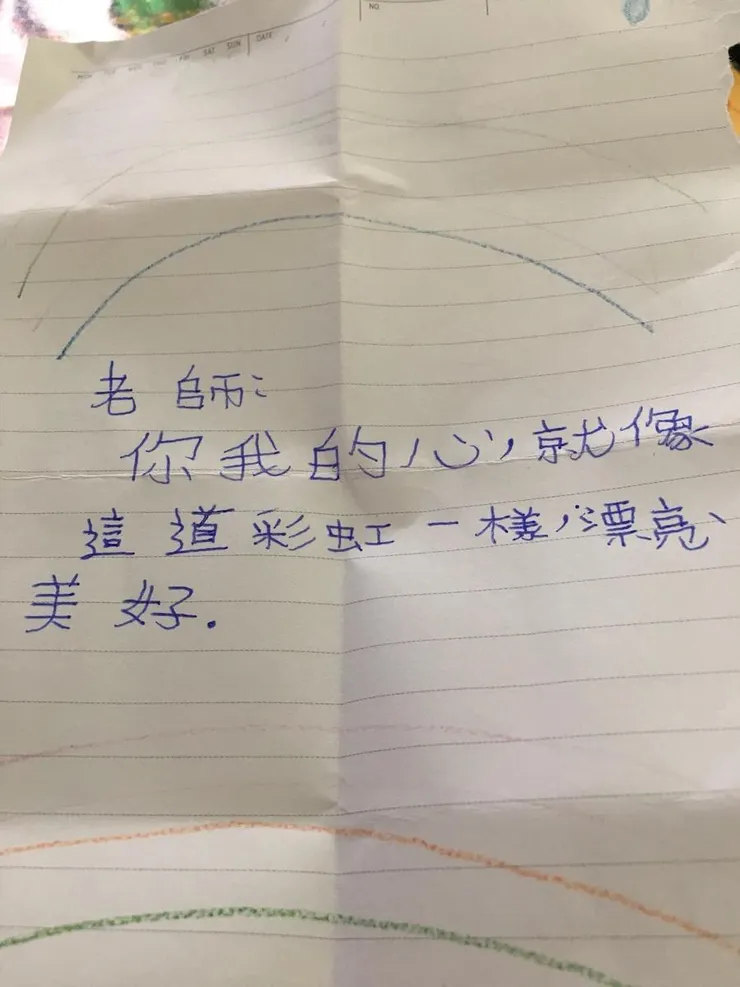 MON TUE WED THU FRI SAT SUN DATE / /
NO.
老師:
你我的心,就像
這道彩虹一樣,漂亮、
美好.